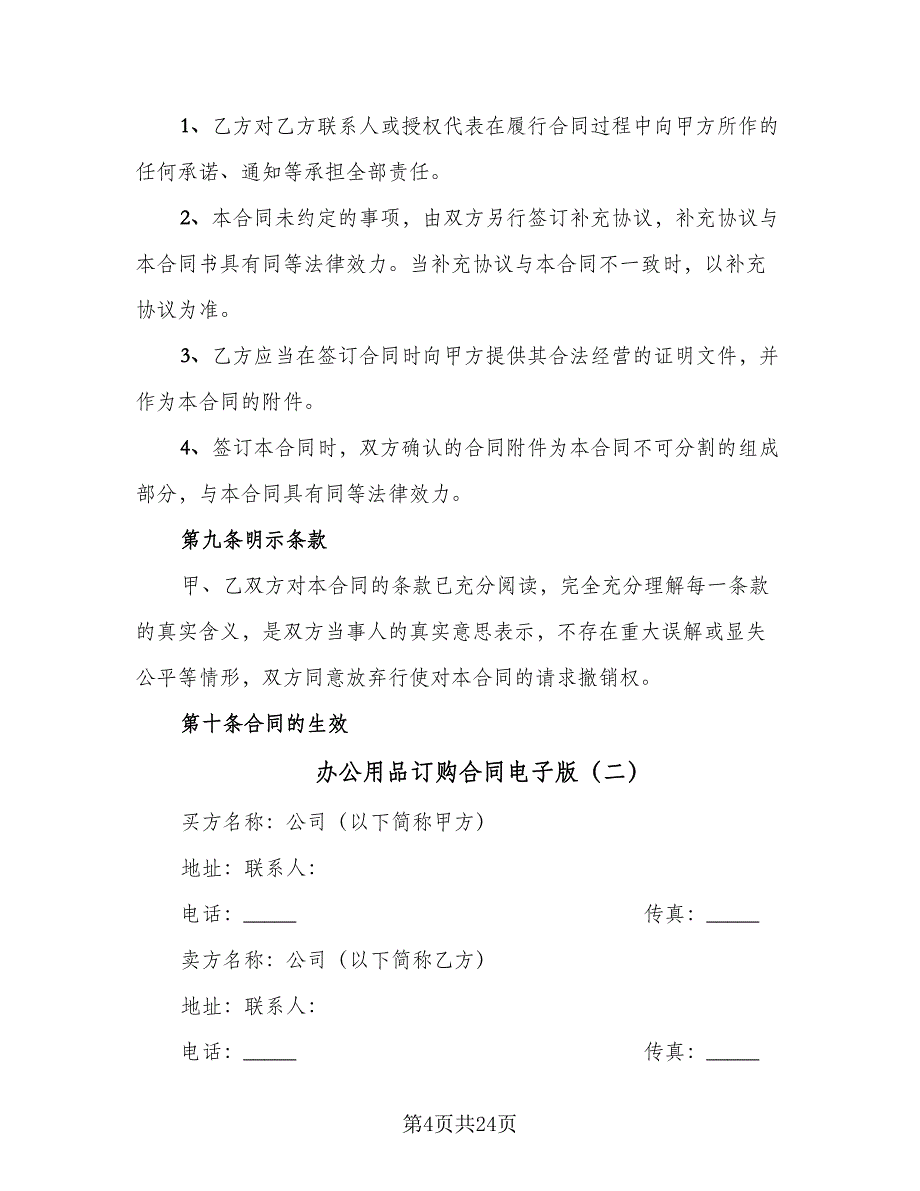 1、乙方对乙方联系人或授权代表在履行合同过程中向甲方所作的
任何承诺、通知等承担全部责任。
2、本合同未约定的事项，由双方另行签订补充协议，补充协议与
本合同书具有同等法律效力。当补充协议与本合同不一致时，以补充
协议为准。
3、乙方应当在签订合同时向甲方提供其合法经营的证明文件，并
作为本合同的附件。
4、签订本合同时，双方确认的合同附件为本合同不可分割的组成
部分，与本合同具有同等法律效力。
第九条明示条款
甲、乙双方对本合同的条款已充分阅读，完全充分理解每一条款
的真实含义，是双方当事人的真实意思表示，不存在重大误解或显失
公平等情形，双方同意放弃行使对本合同的请求撤销权。
第十条合同的生效
办公用品订购合同电子版（二）
买方名称：公司（以下简称甲方）
地址：联系人：
电话：_____ 传真：_____
卖方名称：公司（以下简称乙方）
地址：联系人：
电话：_____ 传真：_____
第4页共24页